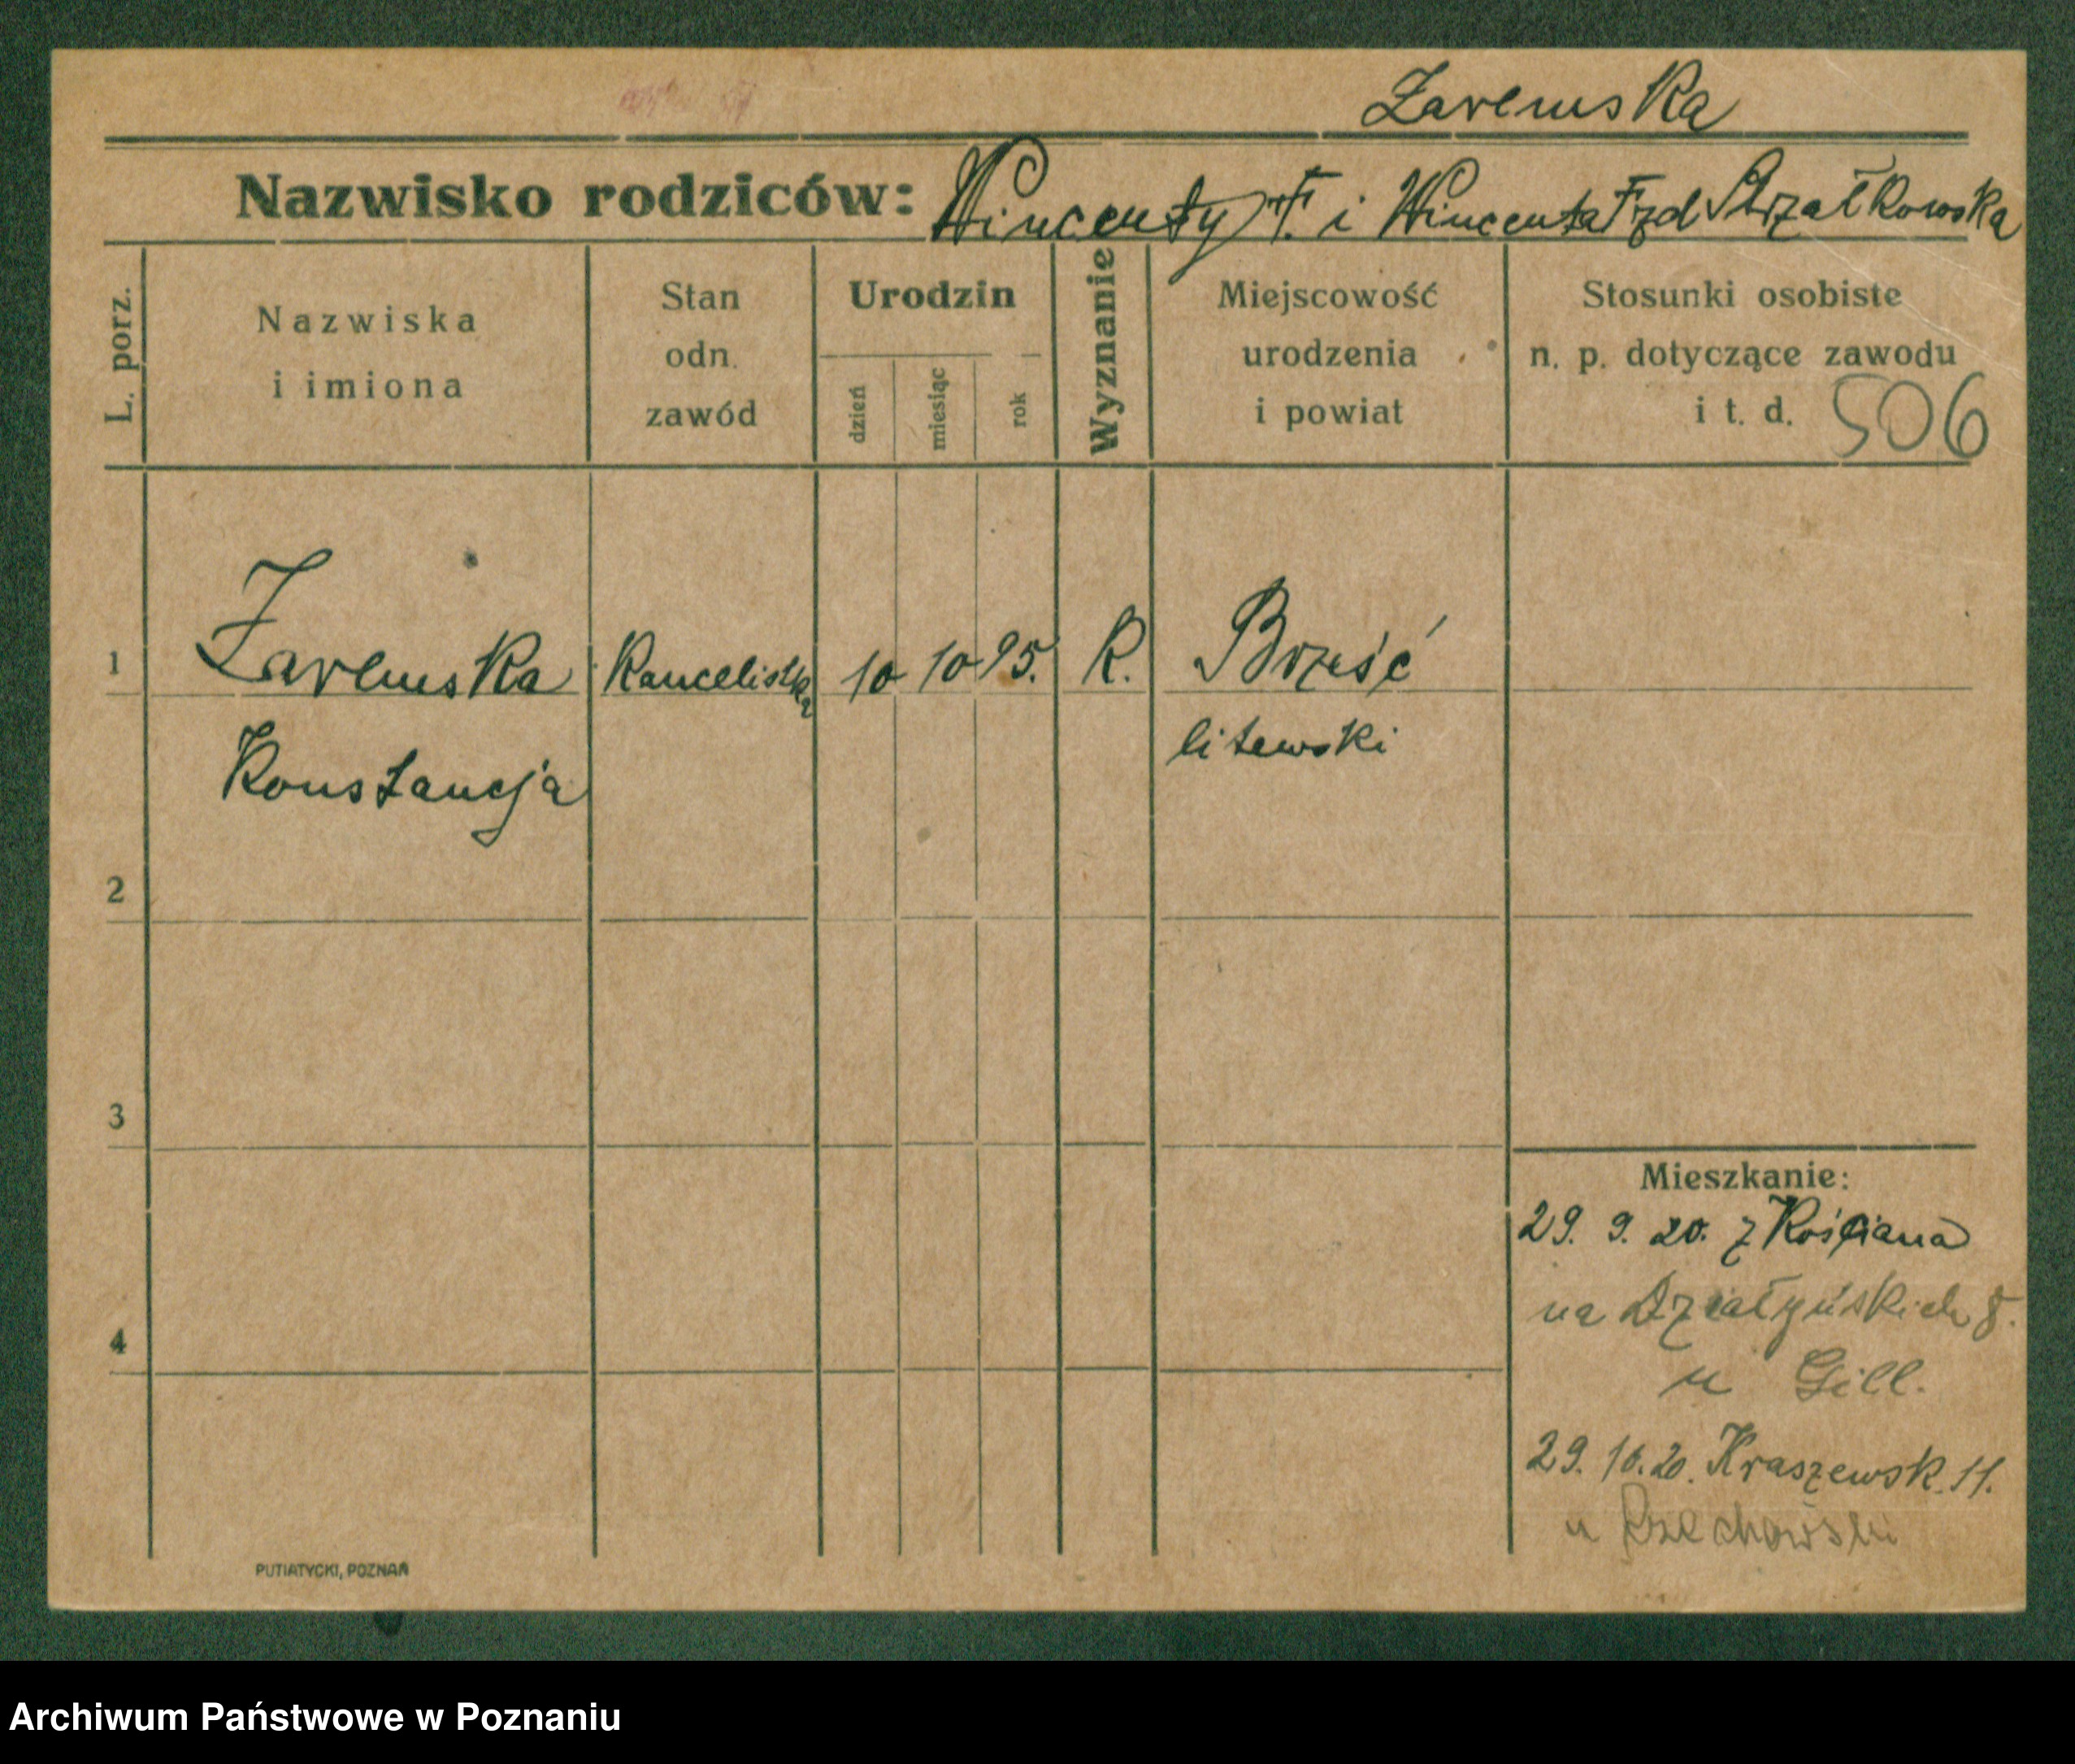 Zaremska
Nazwisko rodziców: Wincenty † i Wincenta † zd Strzałkowska
L. porz.
Nazwiska
i imiona
Stan
odn.
zawód
Urodzin
dzień
miesiąc
rok
Wyznanie
Miejscowość
urodzenia
i powiat
Stosunki osobiste
n. p. dotyczące zawodu
i t. d. 506
1 Zaremska Kancelistka 10 10 95. K. Brześć
Konstancja litewski
2
3
4
Mieszkanie:
29. 9. 20. z Kościana
na Działyńskich 8.
u Gill.
29. 10. 20. Kraszewsk. 11.
u
PUTIATYCKI, POZNAŃ
Archiwum Państwowe w Poznaniu